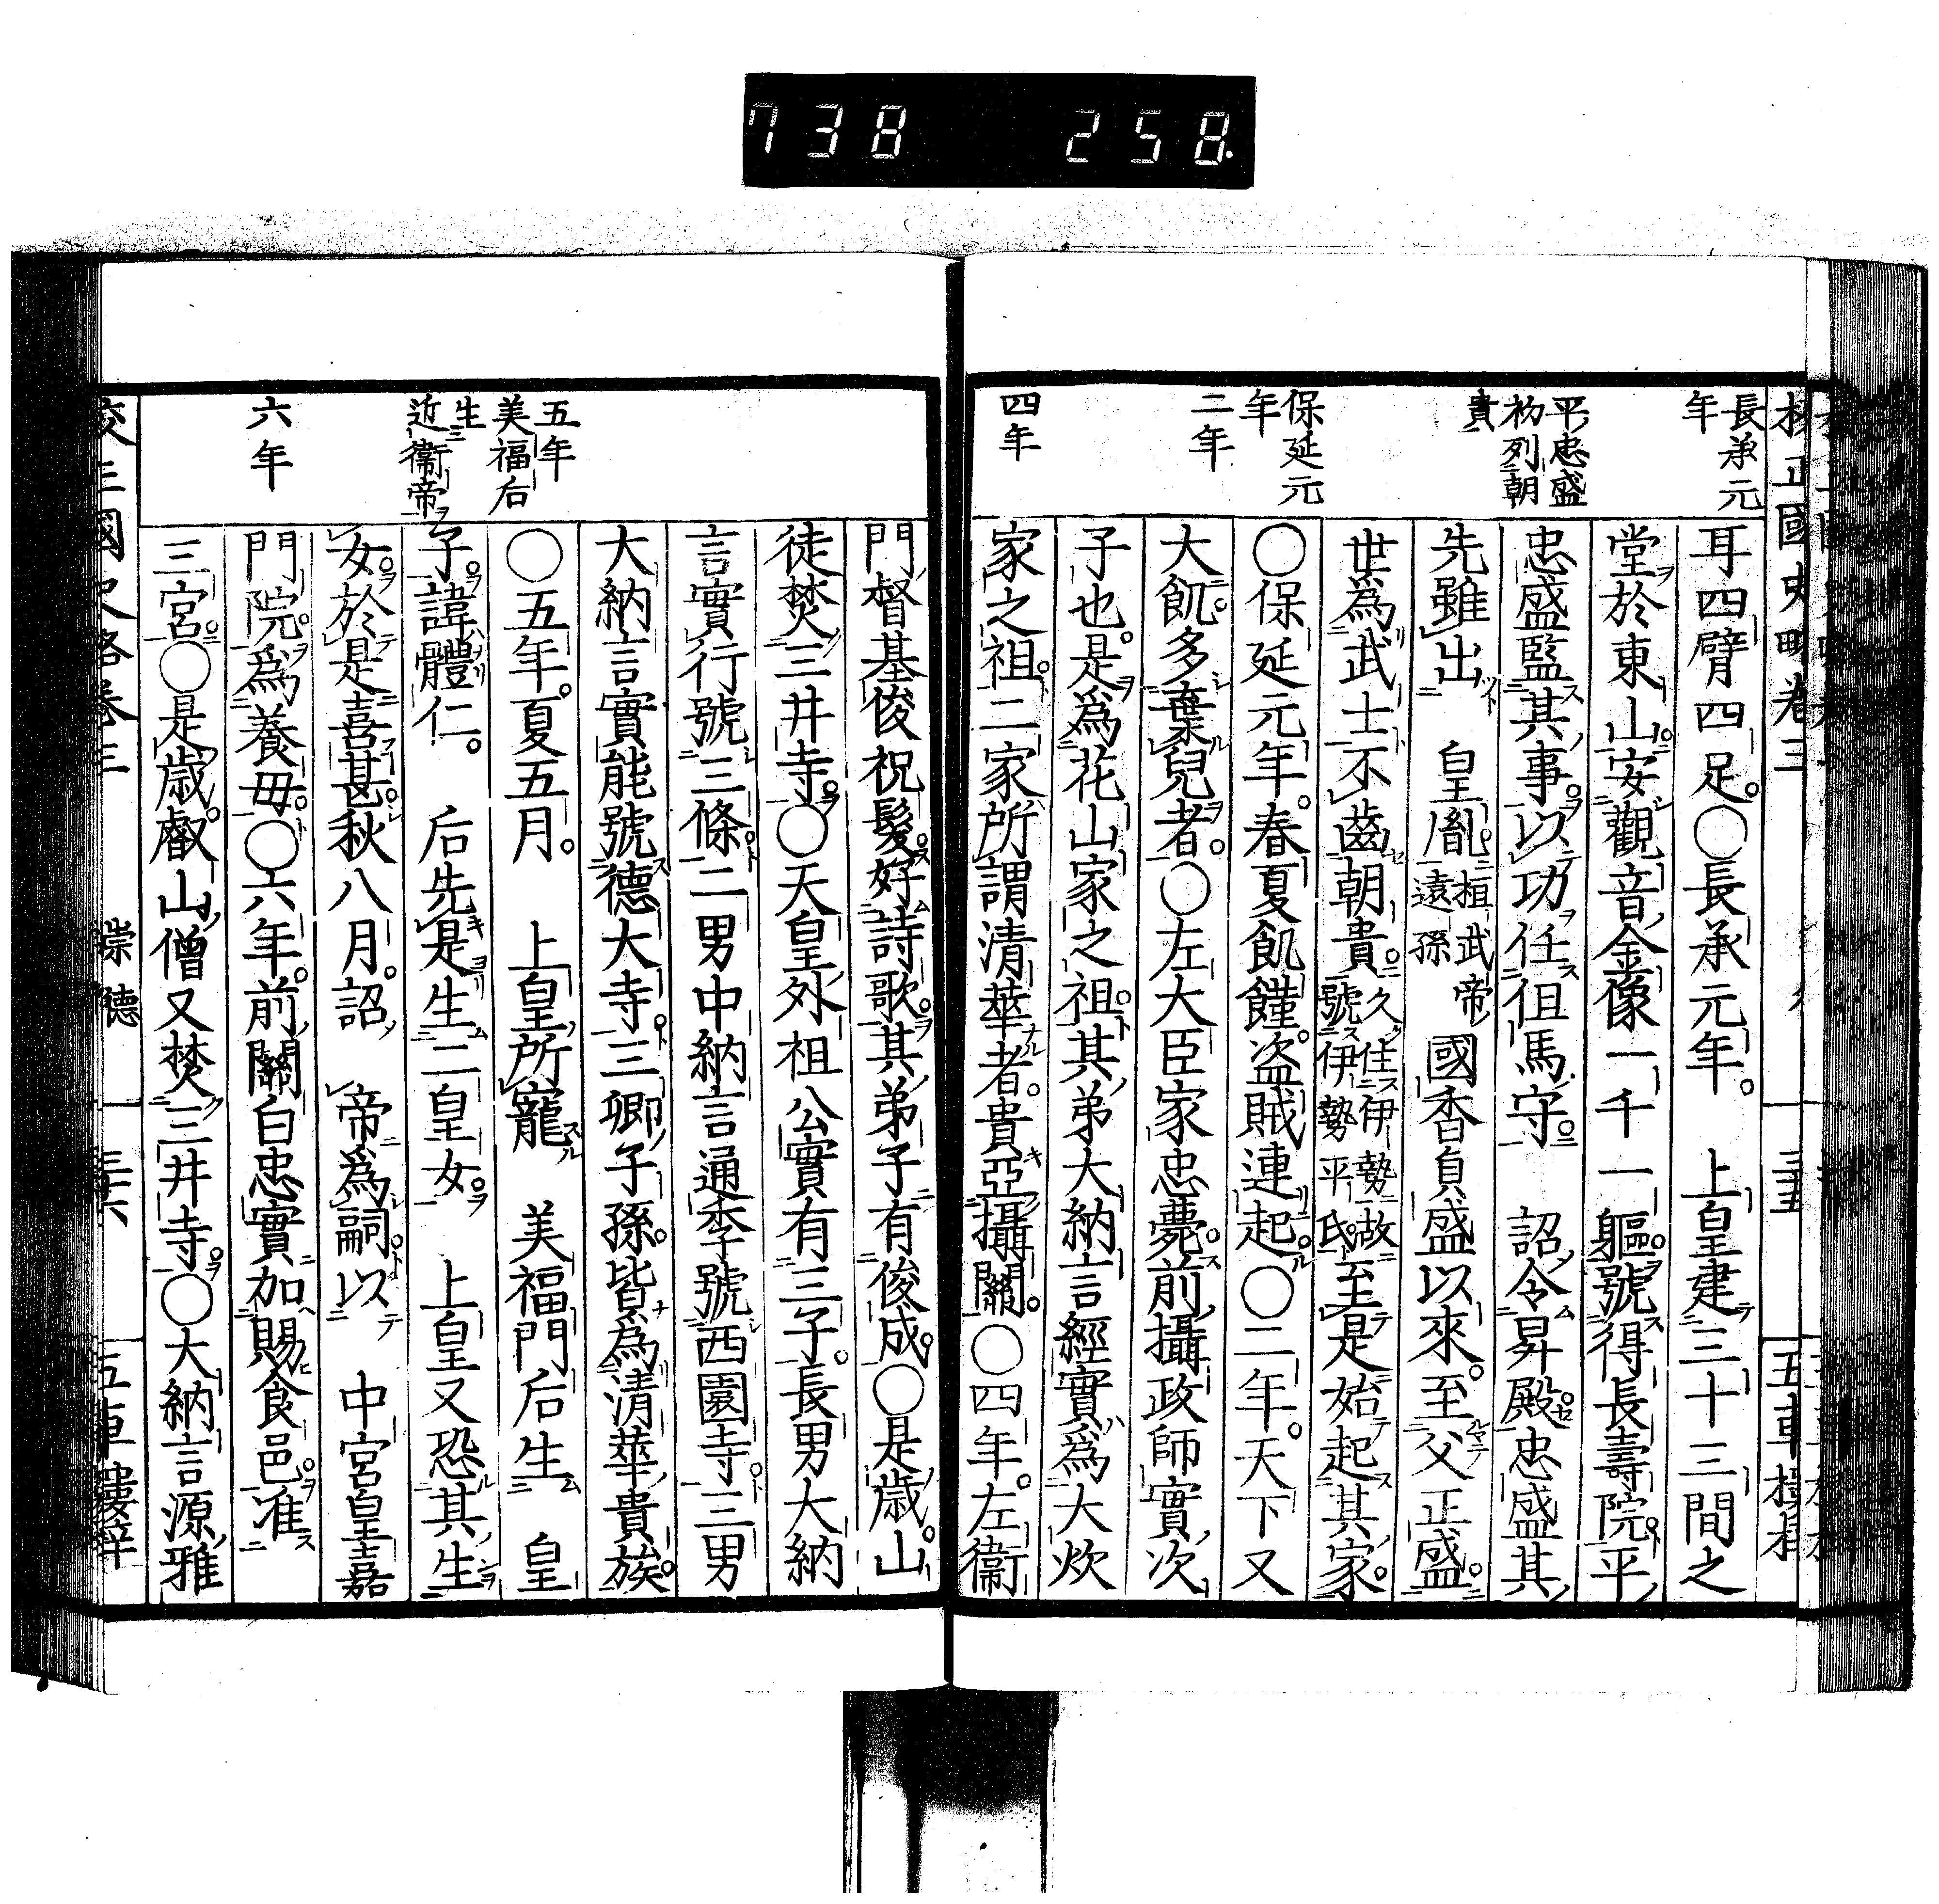 738 258.
校正國史略卷三 三十五 五車樓梓
長承元
年
平忠盛
初列朝
貴
保延元
年
二年
四年
耳四臂四足。○長承元年。 上皇建三十三間之
堂於東山安觀音金像一千一軀。號得長壽院。平
忠盛監其事。以功任但馬守。 詔令昇殿。忠盛其
先雖出 皇胤。桓武帝遠孫 國香貞盛以來。至父正盛。
世爲武士不齒朝貴。久住伊勢故號伊勢平氏至是始起其家。
○保延元年。春夏飢饉。盗賊連起。○二年。天下又
大飢。多棄兒者。○左大臣家忠薨。前攝政師實次
子也。是爲花山家之祖。其弟大納言經實爲大炊
家之祖。二家所謂清華者。貴亞攝關。○四年。左衞
門督基俊祝髮。好詩歌。其弟子有俊成。○是歲。山
徒焚三井寺。○天皇外祖公實有三子。長男大納
言實行號三條。二男中納言通季號西園寺。三男
大納言實能號德大寺。三卿子孫。皆爲清華貴族。
○五年。夏五月。 上皇所寵 美福門后生 皇
子。諱體仁。 后先是生二皇女。 上皇又恐其生
女。於是喜甚。秋八月。詔 帝爲嗣。以 中宮皇嘉
門院。爲養母。○六年。前關白忠實加賜食邑。准
三宮。○是歲。叡山僧又焚三井寺。○大納言源雅
五年
美福后
生
近衞帝
六年
校正國史略卷三 崇德 三十六 五車樓梓